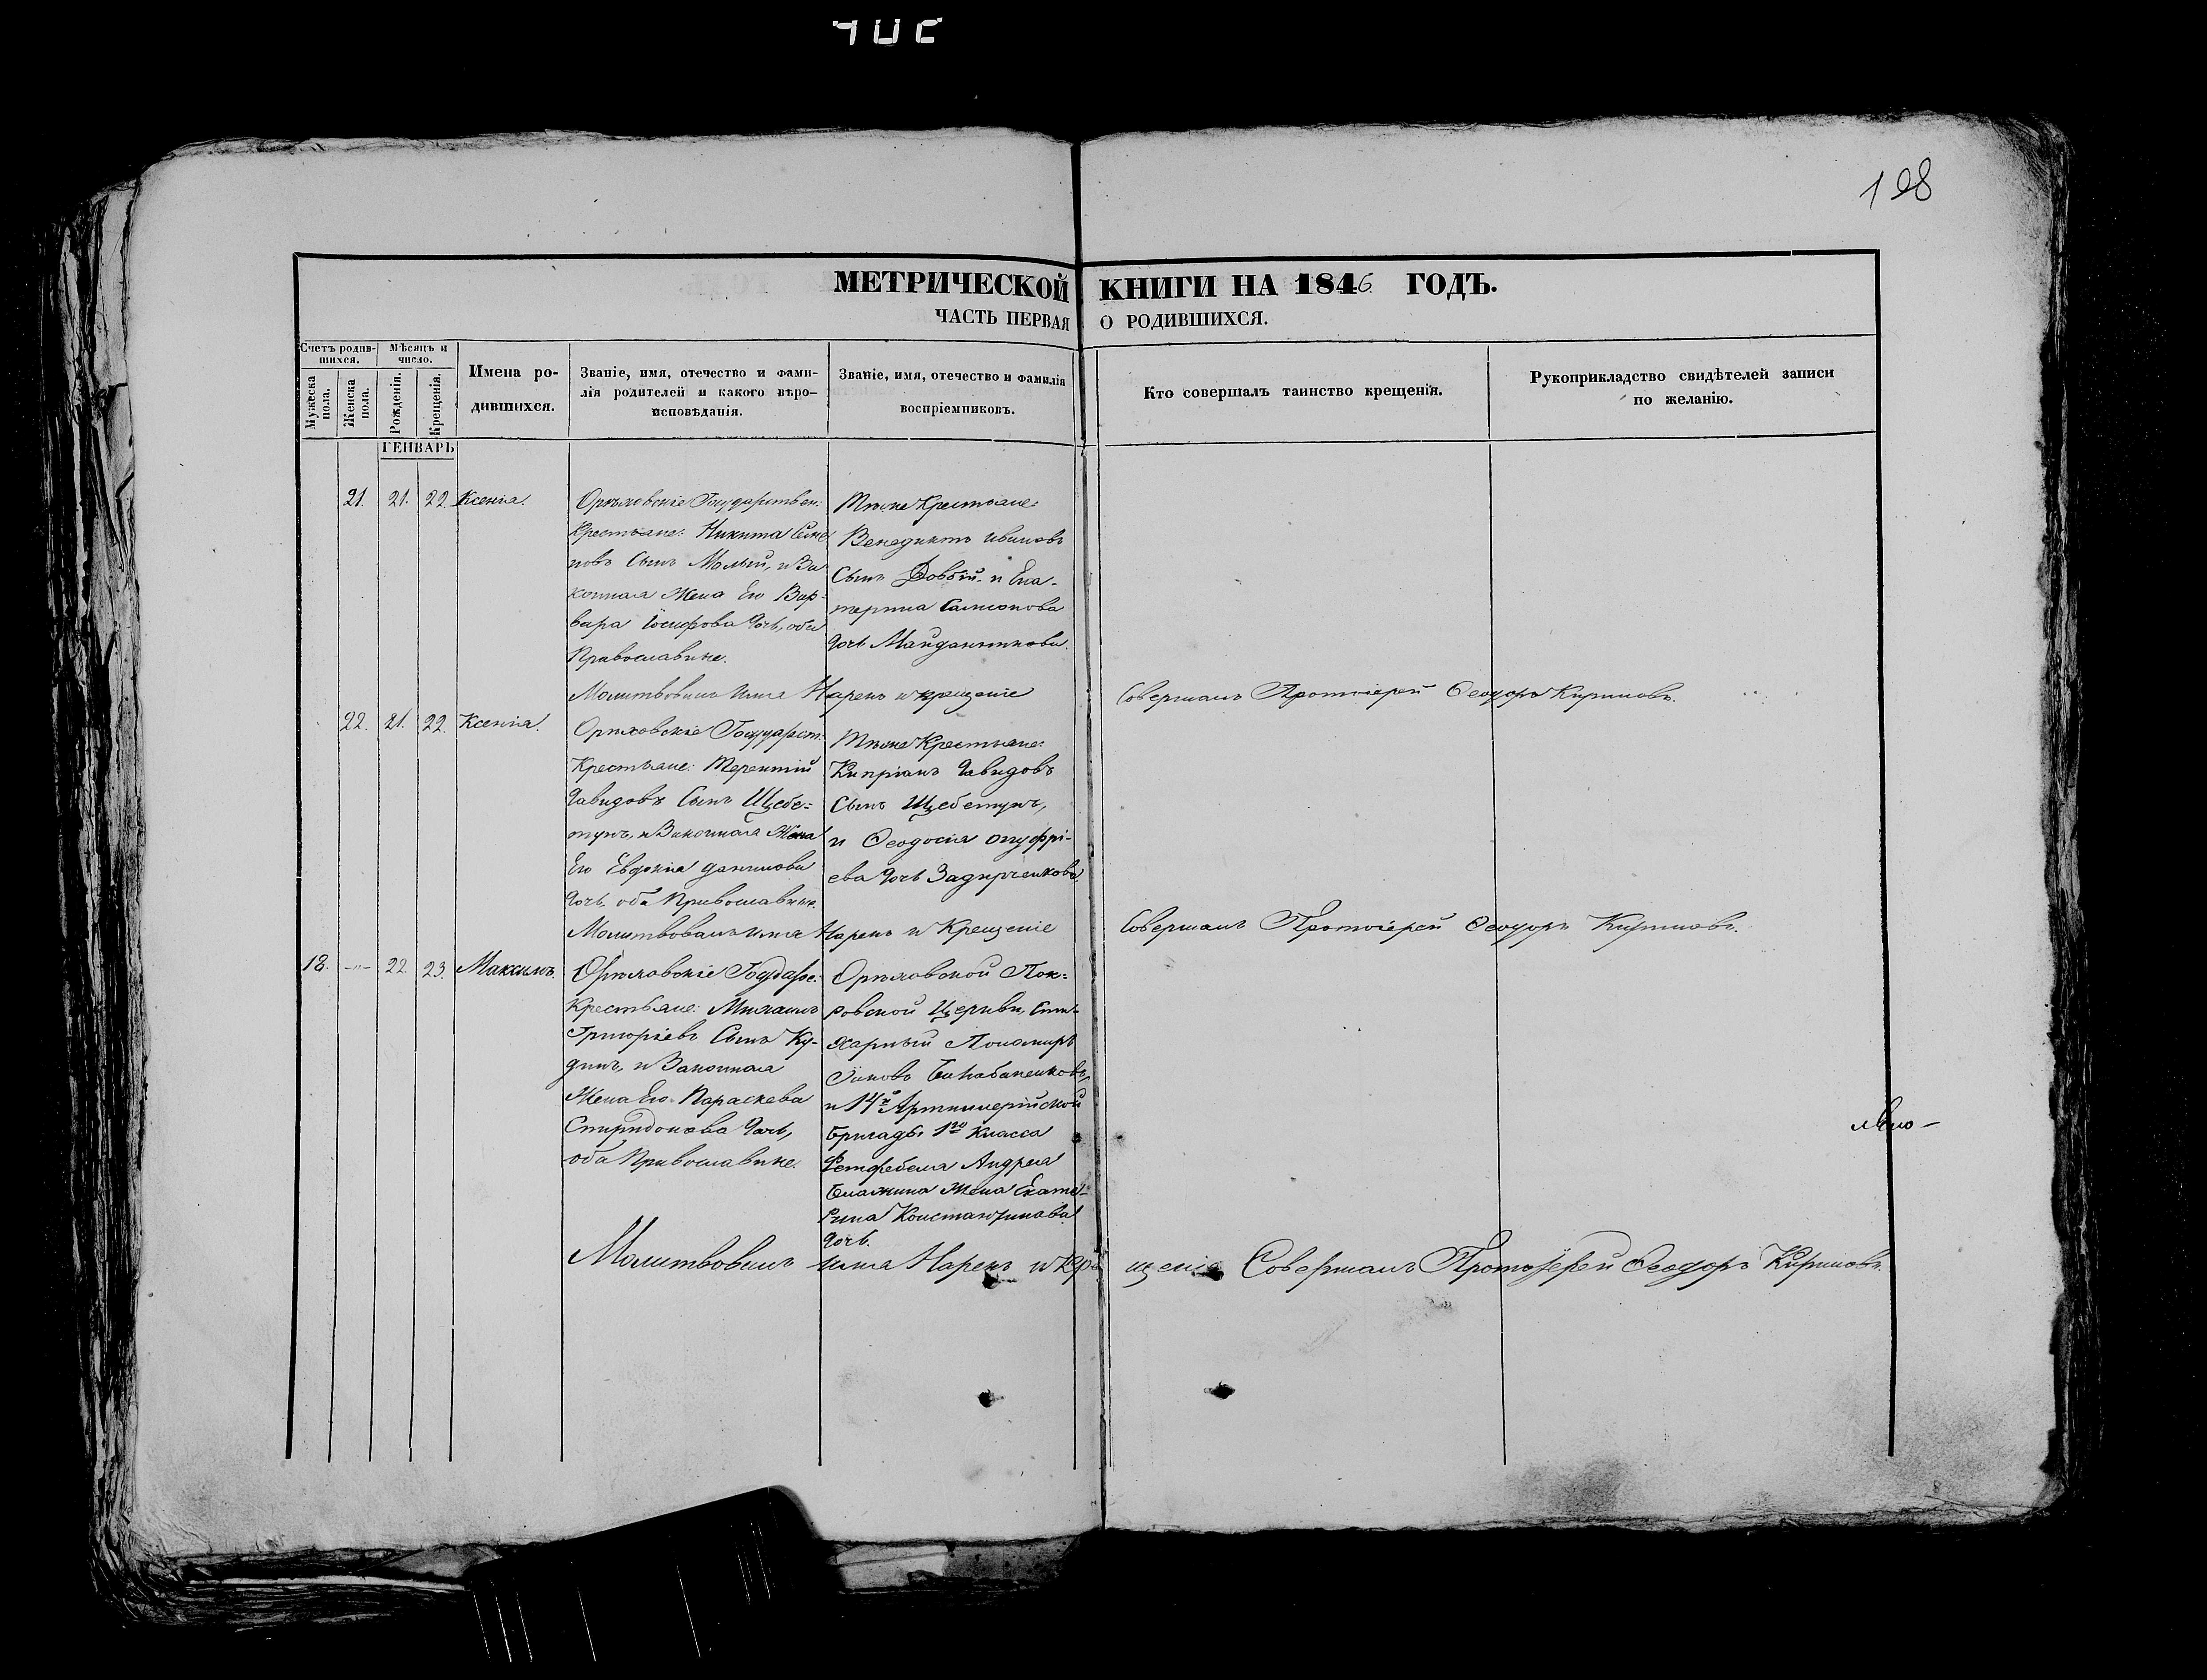 198
МЕТРИЧЕСКОЙ КНИГИ НА 1846 ГОДЪ.
ЧАСТЬ ПЕРВАЯ О РОДИВШИХСЯ.
Счетъ родив-
шихся.
Мужеска
пола.
Женска
пола.
Мѣсяцъ и
число.
Рожденія.
Крещенія.
Имена ро-
дившихся.
Званіе, имя, отечество и фами-
лія родителей и какого вѣро-
исповѣданія.
Званіе, имя, отечество и фамилія
воспріемниковъ.
Кто совершалъ таинство крещенія.
Рукоприкладство свидѣтелей записи
по желанію.
ГЕНВАРЬ
21. 21. 22. Ксенія.
Орѣховскіе Государствен:
Крестьяне: Никита Семе
новъ Сынъ Малый, и За
конная Жена Его Вар-
вара Іосифова Дочь, оба
Православные.
Тѣже Крестьяне:
Венедиктъ Ивановъ
Сынъ Довбій. и Ека-
терина Самсонова
Дочь Майданникова.
Молитвовалъ имя Нарекъ и крещеніе Совершалъ Протоіерей Ѳеодоръ Кириловъ.
22. 21. 22. Ксенія.
Орѣховскіе Государст:
Крестьяне: Терентій
Давидовъ Сынъ Щебе=
тунъ, и Законная Жена
Его Евдокія Данилова
Дочь. оба Православные.
Тѣже Крестьяне:
Кипріанъ Давидовъ
Сынъ Щебетунъ,
и Ѳеодосія Онуфрі-
ева Дочь Задирченкова.
Молитвовалъ имя Нарекъ и Крещеніе Совершалъ Протоіерей Ѳеодоръ Кириловъ.
18. -"- 22. 23. Максимъ.
Орѣховскіе Государс:
Крестьяне: Михаилъ
Григоріевъ Сынъ Ку-
динъ, и Законная
Жена Его Параскева
Спиридонова Дочь,
оба Православные.
Орѣховской Пок=
ровской Церкви, Сти-
харный Пономарь
Іаковъ
и 14й Артиллерійской
Бригады 1го Класса
Фетфебеля Андрея
Жена Екате-
рина Константинова
Дочь.
Молитвовалъ имя Нарекъ и Кре щеніе Совершалъ Протоіерей Ѳеодоръ Кириловъ.